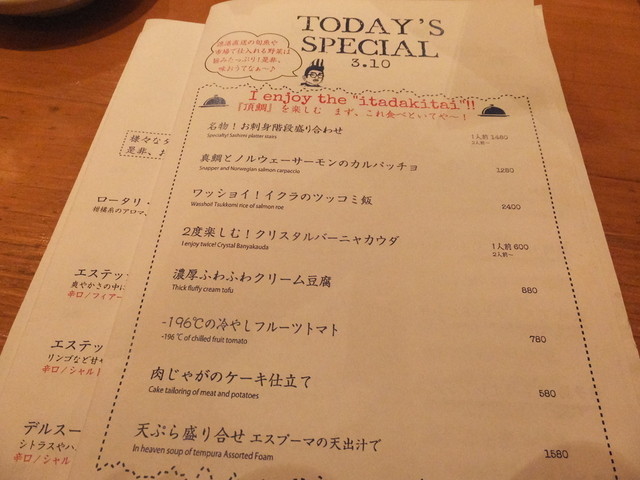 TODAY'S
SPECIAL
3.10
漁港直送の旬魚や
市場で仕入れる野菜は
旨みたっぷり！是非、
味おうてなぁ〜♪
I enjoy the "itadakitai"!!
『頂鯛』を楽しむ まず、これ食べといてや〜！
名物！お刺身階段盛り合わせ 1人前 1480
Specialty! Sashimi platter stairs 2人前〜
真鯛とノルウェーサーモンのカルパッチョ 1280
Snapper and Norwegian salmon carpaccio
ワッショイ！イクラのツッコミ飯 2400
Wasshoi! Tsukkomi rice of salmon roe
2度楽しむ！クリスタルバーニャカウダ 1人前 600
I enjoy twice! Crystal Banyakauda 2人前〜
濃厚ふわふわクリーム豆腐 880
Thick fluffy cream tofu
-196℃の冷やしフルーツトマト 780
-196 ℃ of chilled fruit tomato
肉じゃがのケーキ仕立て 580
Cake tailoring of meat and potatoes
天ぷら盛り合せ エスプーマの天出汁で 1580
In heaven soup of tempura Assorted Foam
様々な
是非、お
ロータリ
柑橘系のアロマ、
エステッ
爽やかさの中に
辛口/フィアー
エステッ
リンゴなど甘
辛口/シャル
デルスー
シトラスやハ
辛口/シャル